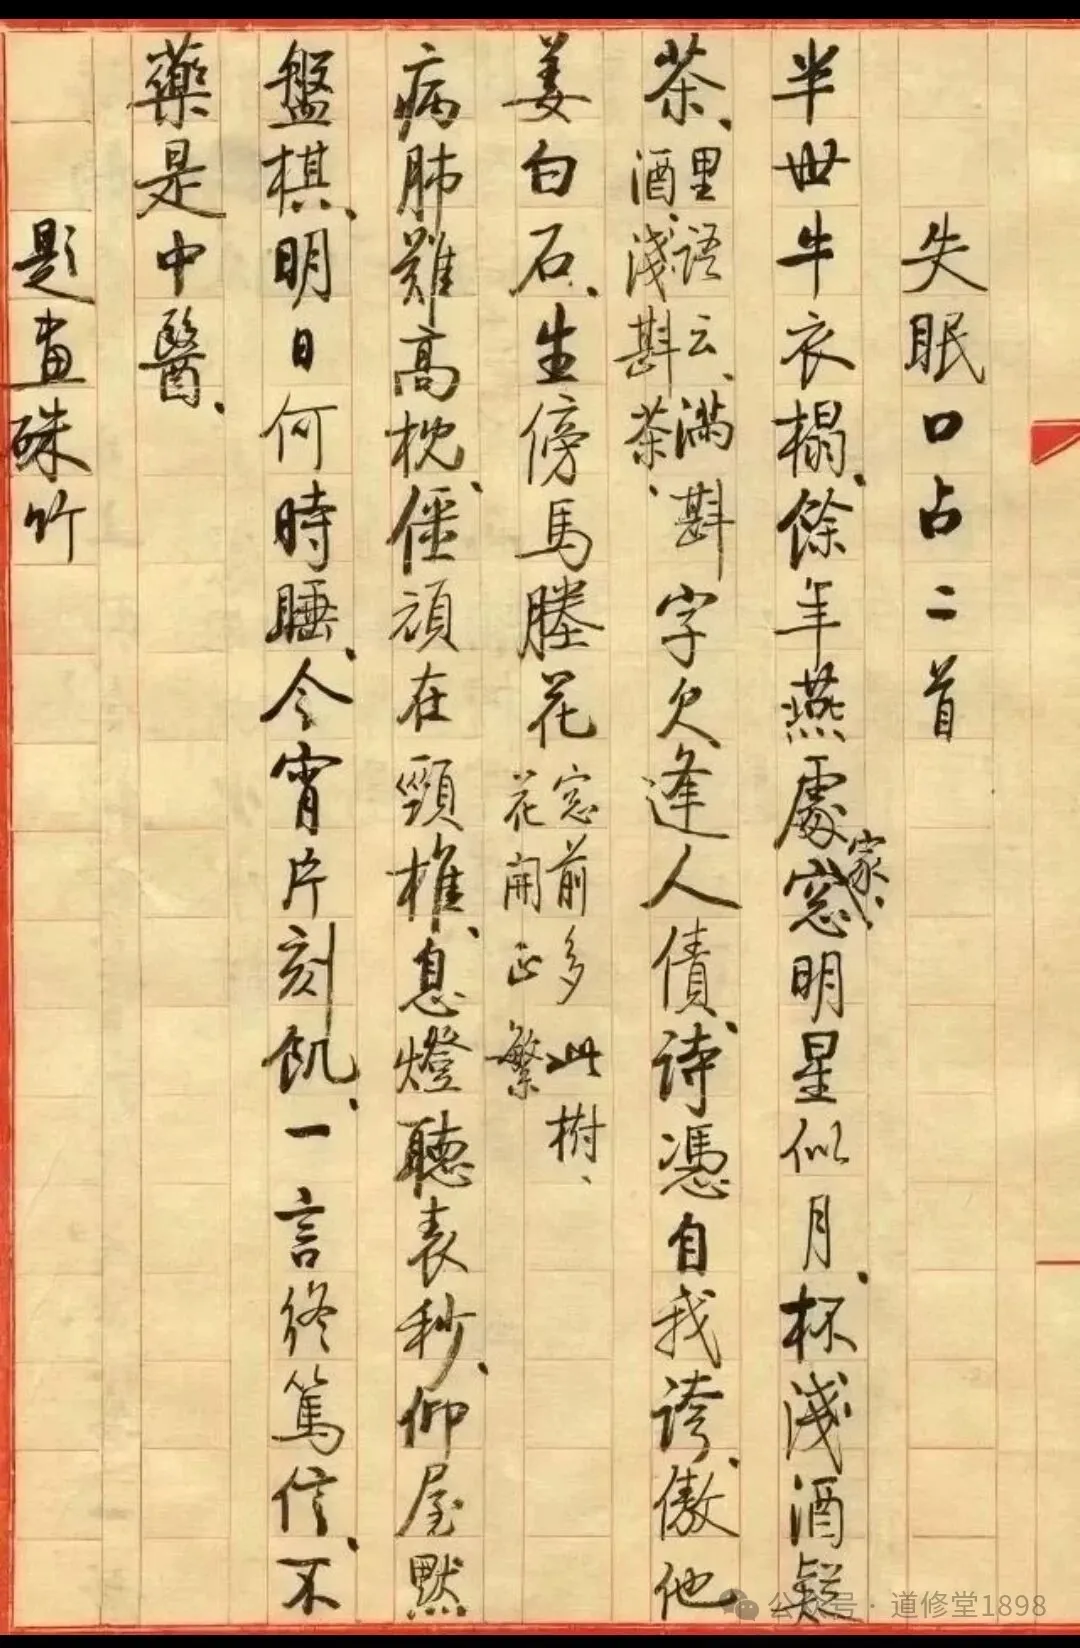 失眠口占二首
半世牛衣榻、餘年燕處家、窓明星似月、杯淺酒疑
茶、里語云、滿斟酒、淺斟茶、字欠逢人債、詩憑自我誇、傲他
姜白石、生傍馬塍花窓前多此樹、花開正繁
病肺難高枕、僵頑在頸椎、息燈聽表秒、仰屋默
盤棋、明日何時睡、今宵片刻飢、一言終篤信、不
藥是中醫、
題畫硃竹
公众号·道修堂1898